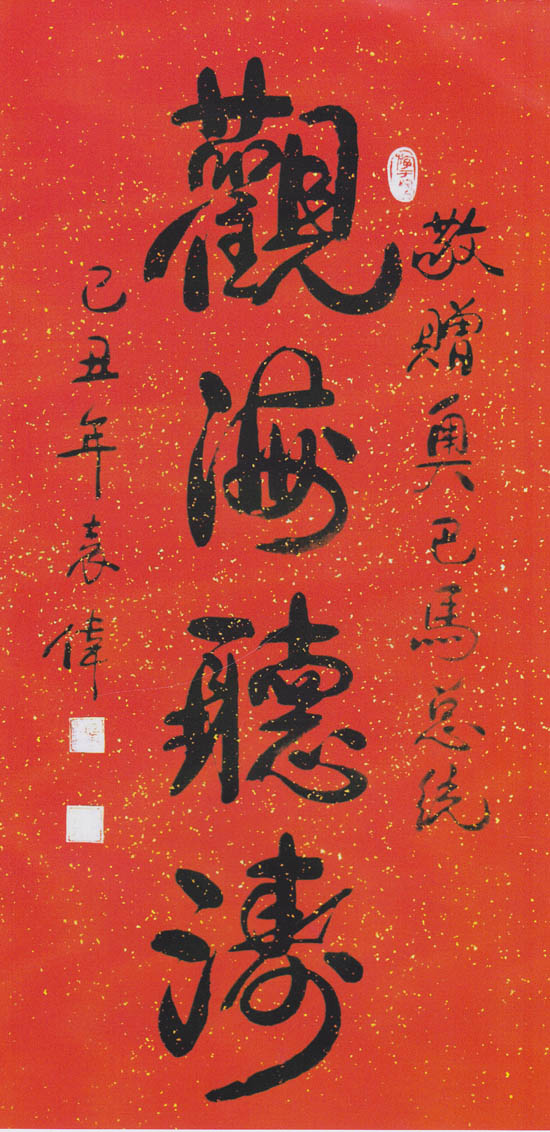 敬贈奥巴馬总统
觀海聽濤
己丑年袁偉